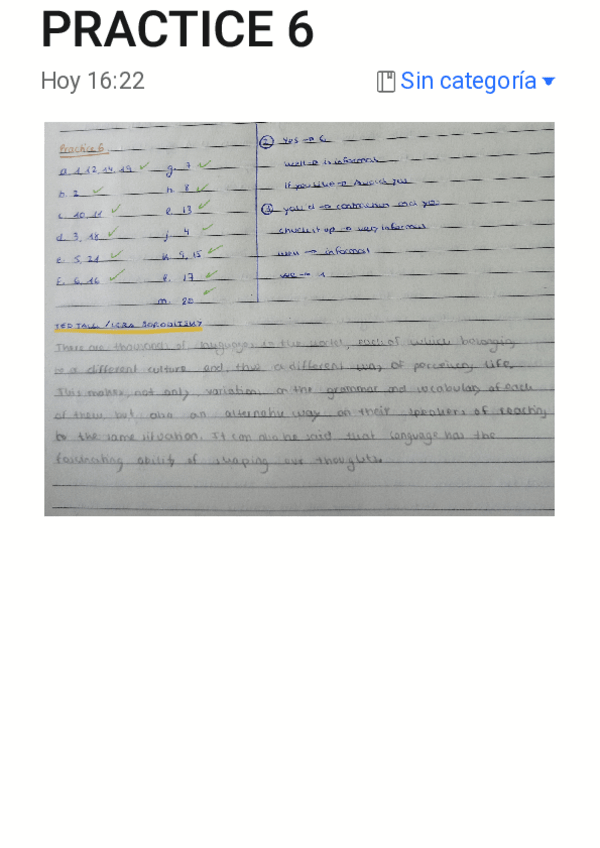 PRACTICE 6
Hoy 16:22
Sin categoría
Practice 6
a. 1, 12, 14, 19 ✓
b. 2 ✓
c. 10, 11 ✓
d. 3, 18 ✓
e. 5, 21 ✓
f. 6, 16 ✓
g. 7 ✓
h. 8 ✓
e. 13 ✓
j. 4 ✓
k. 9, 15 ✓
l. 17 ✓
m. 20 ✓
② Yes →
→ informal
If you like →
③ you'd → contraction
→ very informal
→ informal
TED TALK / LERA BORODITSKY
There are thousands of languages in the world, each of which belonging
to a different culture and, thus a different way of perceiving life.
This makes not only variation on the grammar and vocabulary of each
of them, but also an alternative way on their speakers of reacting
to the same situation. It can also be said that language has the
fascinating ability of shaping our thoughts.